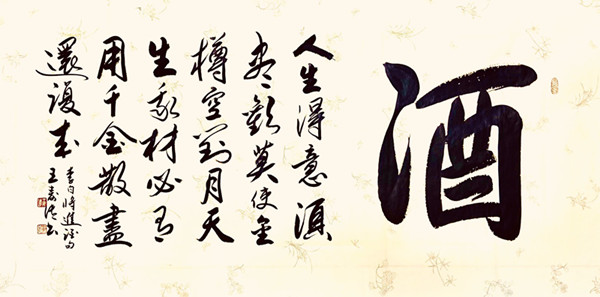 酒
人生得意須
尽歡莫使金
樽空對月天
生我材必有
用千金散盡
還復来
李白將進酒句